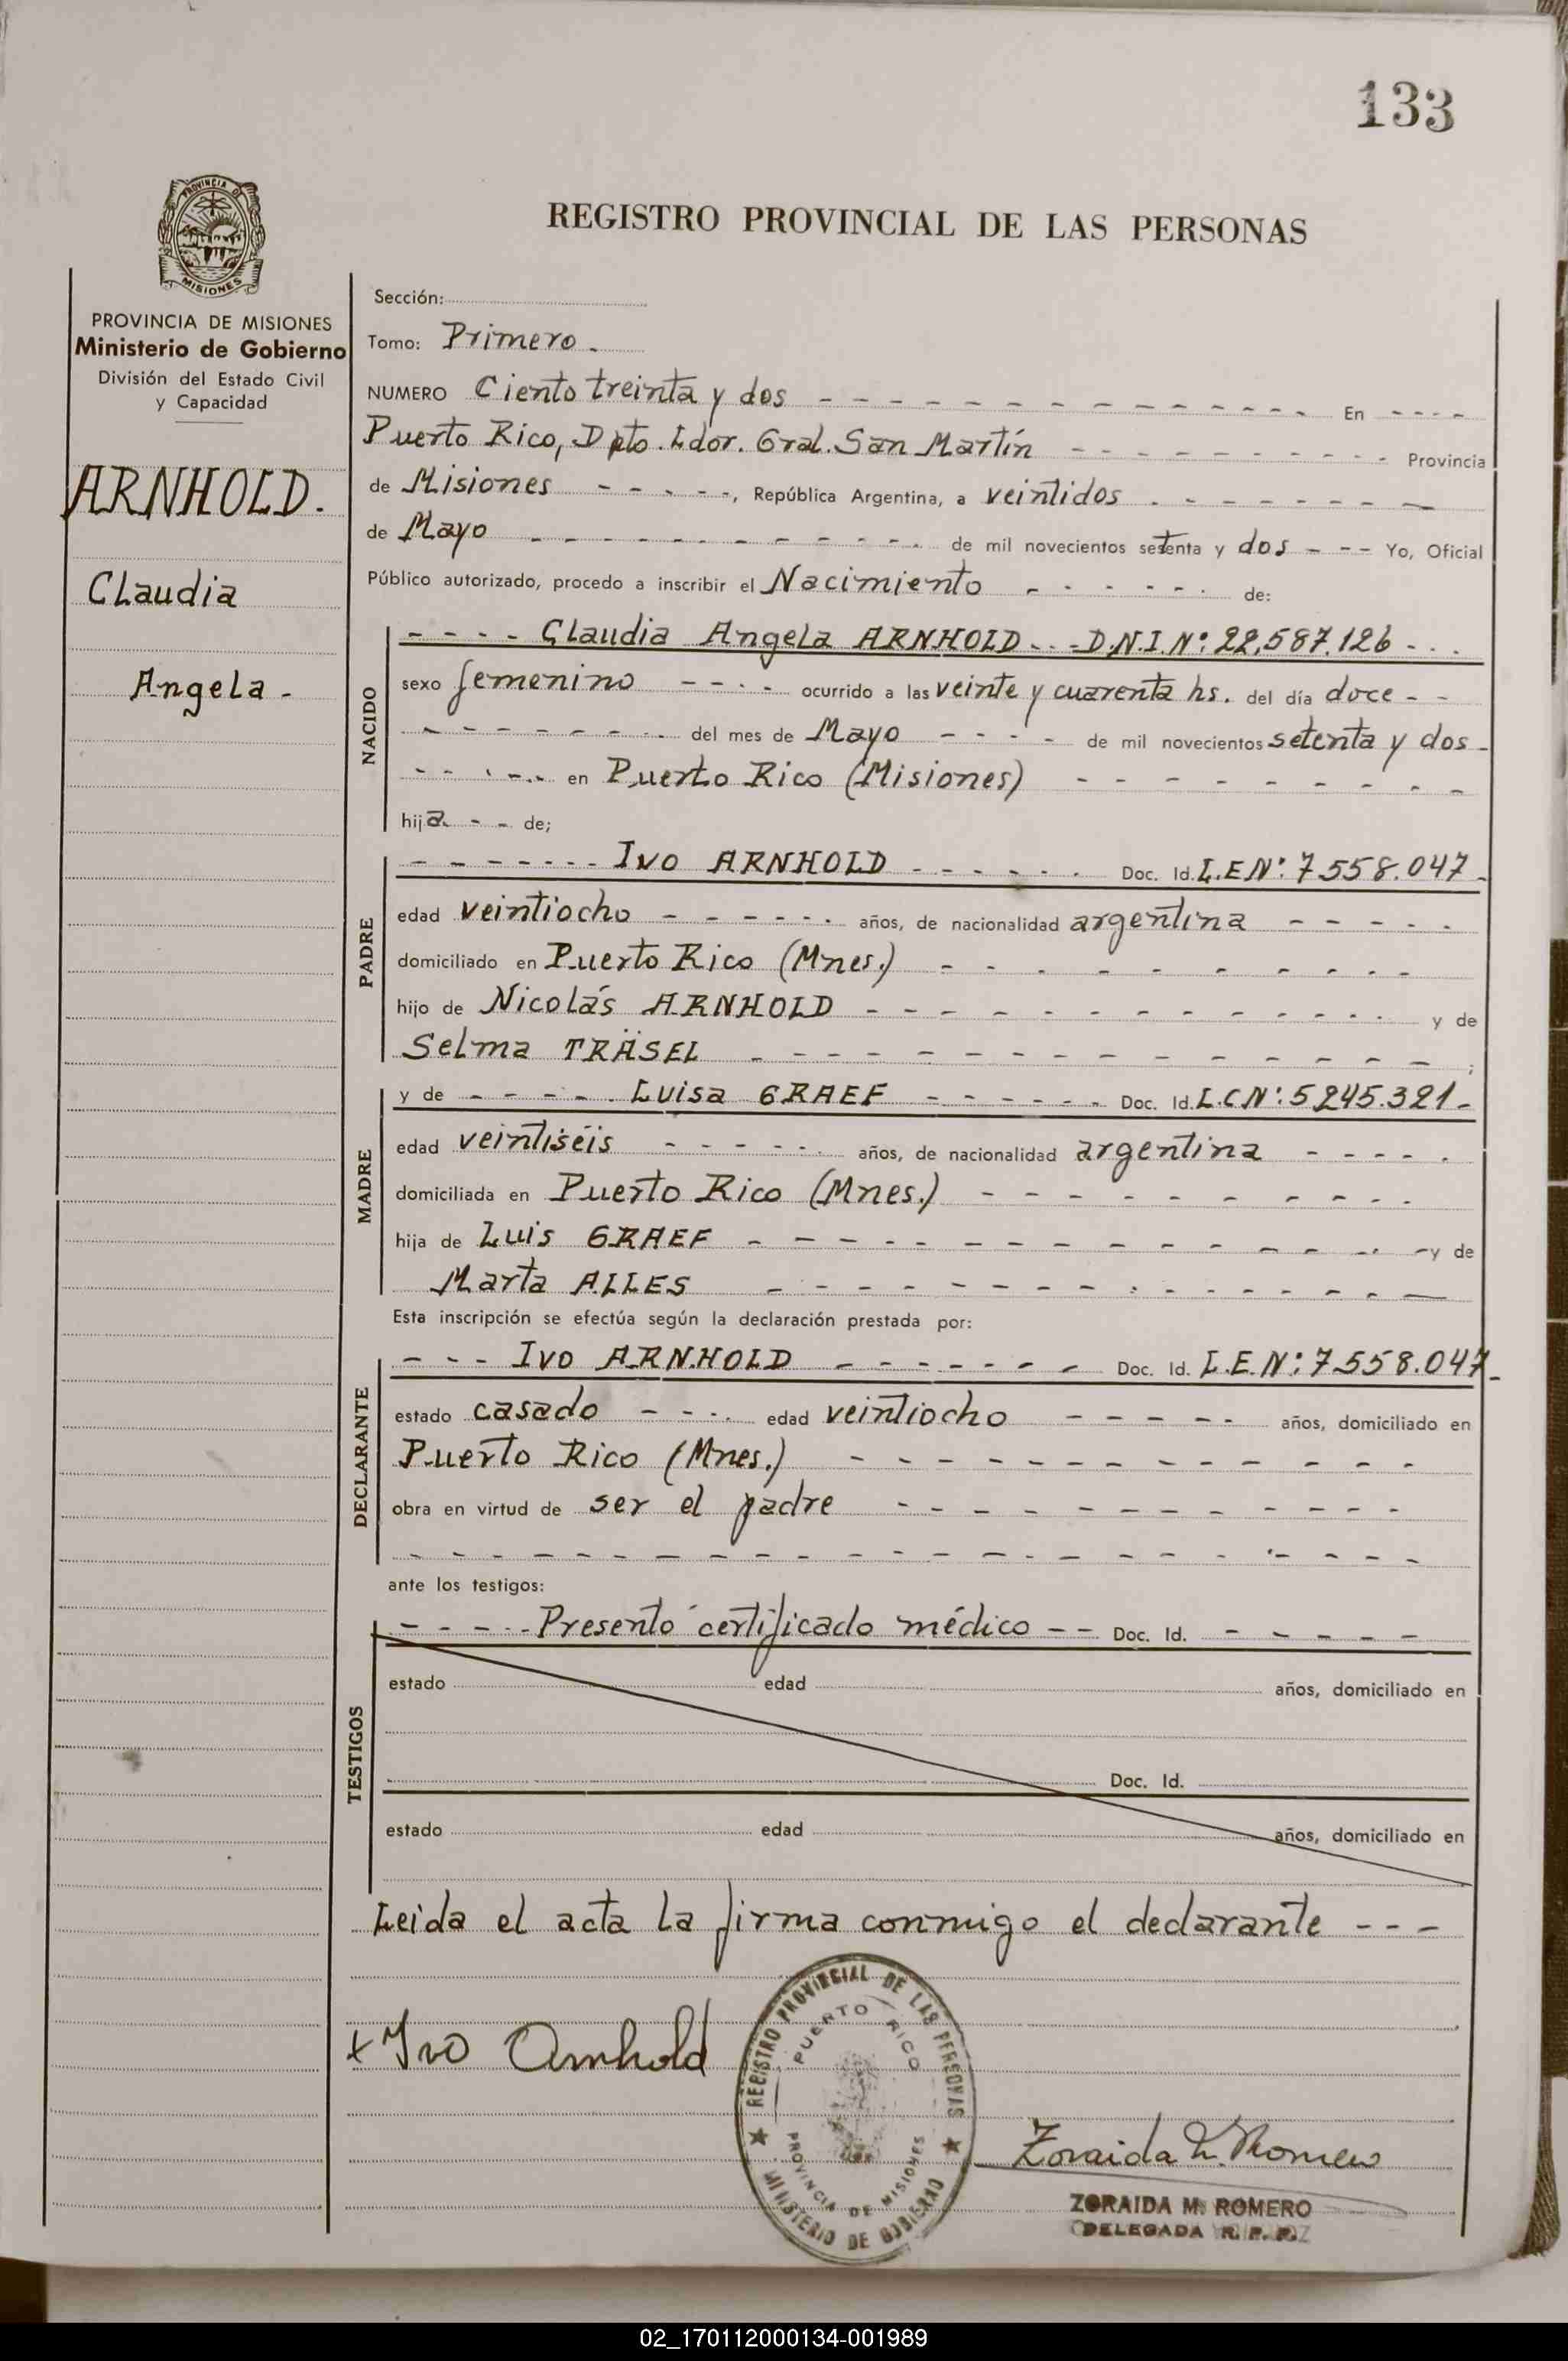 133
PROVINCIA DE
MISIONES
PROVINCIA DE MISIONES
Ministerio de Gobierno
División del Estado Civil
y Capacidad
ARNHOLD.
Claudia
Angela -
REGISTRO PROVINCIAL DE LAS PERSONAS
Sección:
Tomo: Primero.
NUMERO Ciento treinta y dos - - - En - - -
Puerto Rico, Dpto. Ldor. Gral. San Martín - - - Provincia
de Misiones - - -, República Argentina, a veintidos - - -
de Mayo - - - de mil novecientos setenta y dos - - - Yo, Oficial
Público autorizado, procedo a inscribir el Nacimiento - - - de:
NACIDO
- - - - Claudia Angela ARNHOLD - - - D.N.I. N: 22.587.126 - - -
sexo femenino - - - ocurrido a las veinte y cuarenta hs. del día doce - -
- - - del mes de Mayo - - - de mil novecientos setenta y dos -
- - - en Puerto Rico (Misiones) - - -
hija - - de;
PADRE
- - - Ivo ARNHOLD - - - Doc. Id. L.E N: 7558.047 -
edad veintiocho - - - años, de nacionalidad argentina - - -
domiciliado en Puerto Rico (Mnes.) - - -
hijo de Nicolás ARNHOLD - - - y de
Selma TRÄSEL - - - ;
MADRE
y de - - - Luisa GRAEF - - - Doc. Id. L.C N: 5245.321 -
edad veintiséis - - - años, de nacionalidad argentina - - -
domiciliada en Puerto Rico (Mnes.) - - -
hija de Luis GRAEF - - - y de
Marta ALLES - - -
Esta inscripción se efectúa según la declaración prestada por:
DECLARANTE
- - - Ivo ARNHOLD - - - Doc. Id. L.E. N: 7558.047 -
estado casado - - - edad veintiocho - - - años, domiciliado en
Puerto Rico (Mnes.) - - -
obra en virtud de ser el padre - - -
- - -
ante los testigos:
TESTIGOS
- - - Presentó certificado médico - - Doc. Id. - - -
estado edad años, domiciliado en
Doc. Id.
estado edad años, domiciliado en
Leida el acta la firma conmigo el declarante - - -
x Ivo Arnhold
REGISTRO PROVINCIAL DE LAS PERSONAS
PUERTO RICO
PROVINCIA DE MISIONES
MINISTERIO DE GOBIERNO
Zoraida M. Romero
ZORAIDA M. ROMERO
DELEGADA R. P. P.
02_170112000134-001989